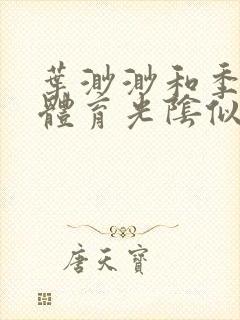 葉渺渺和季
體育光陰似
唐天寶